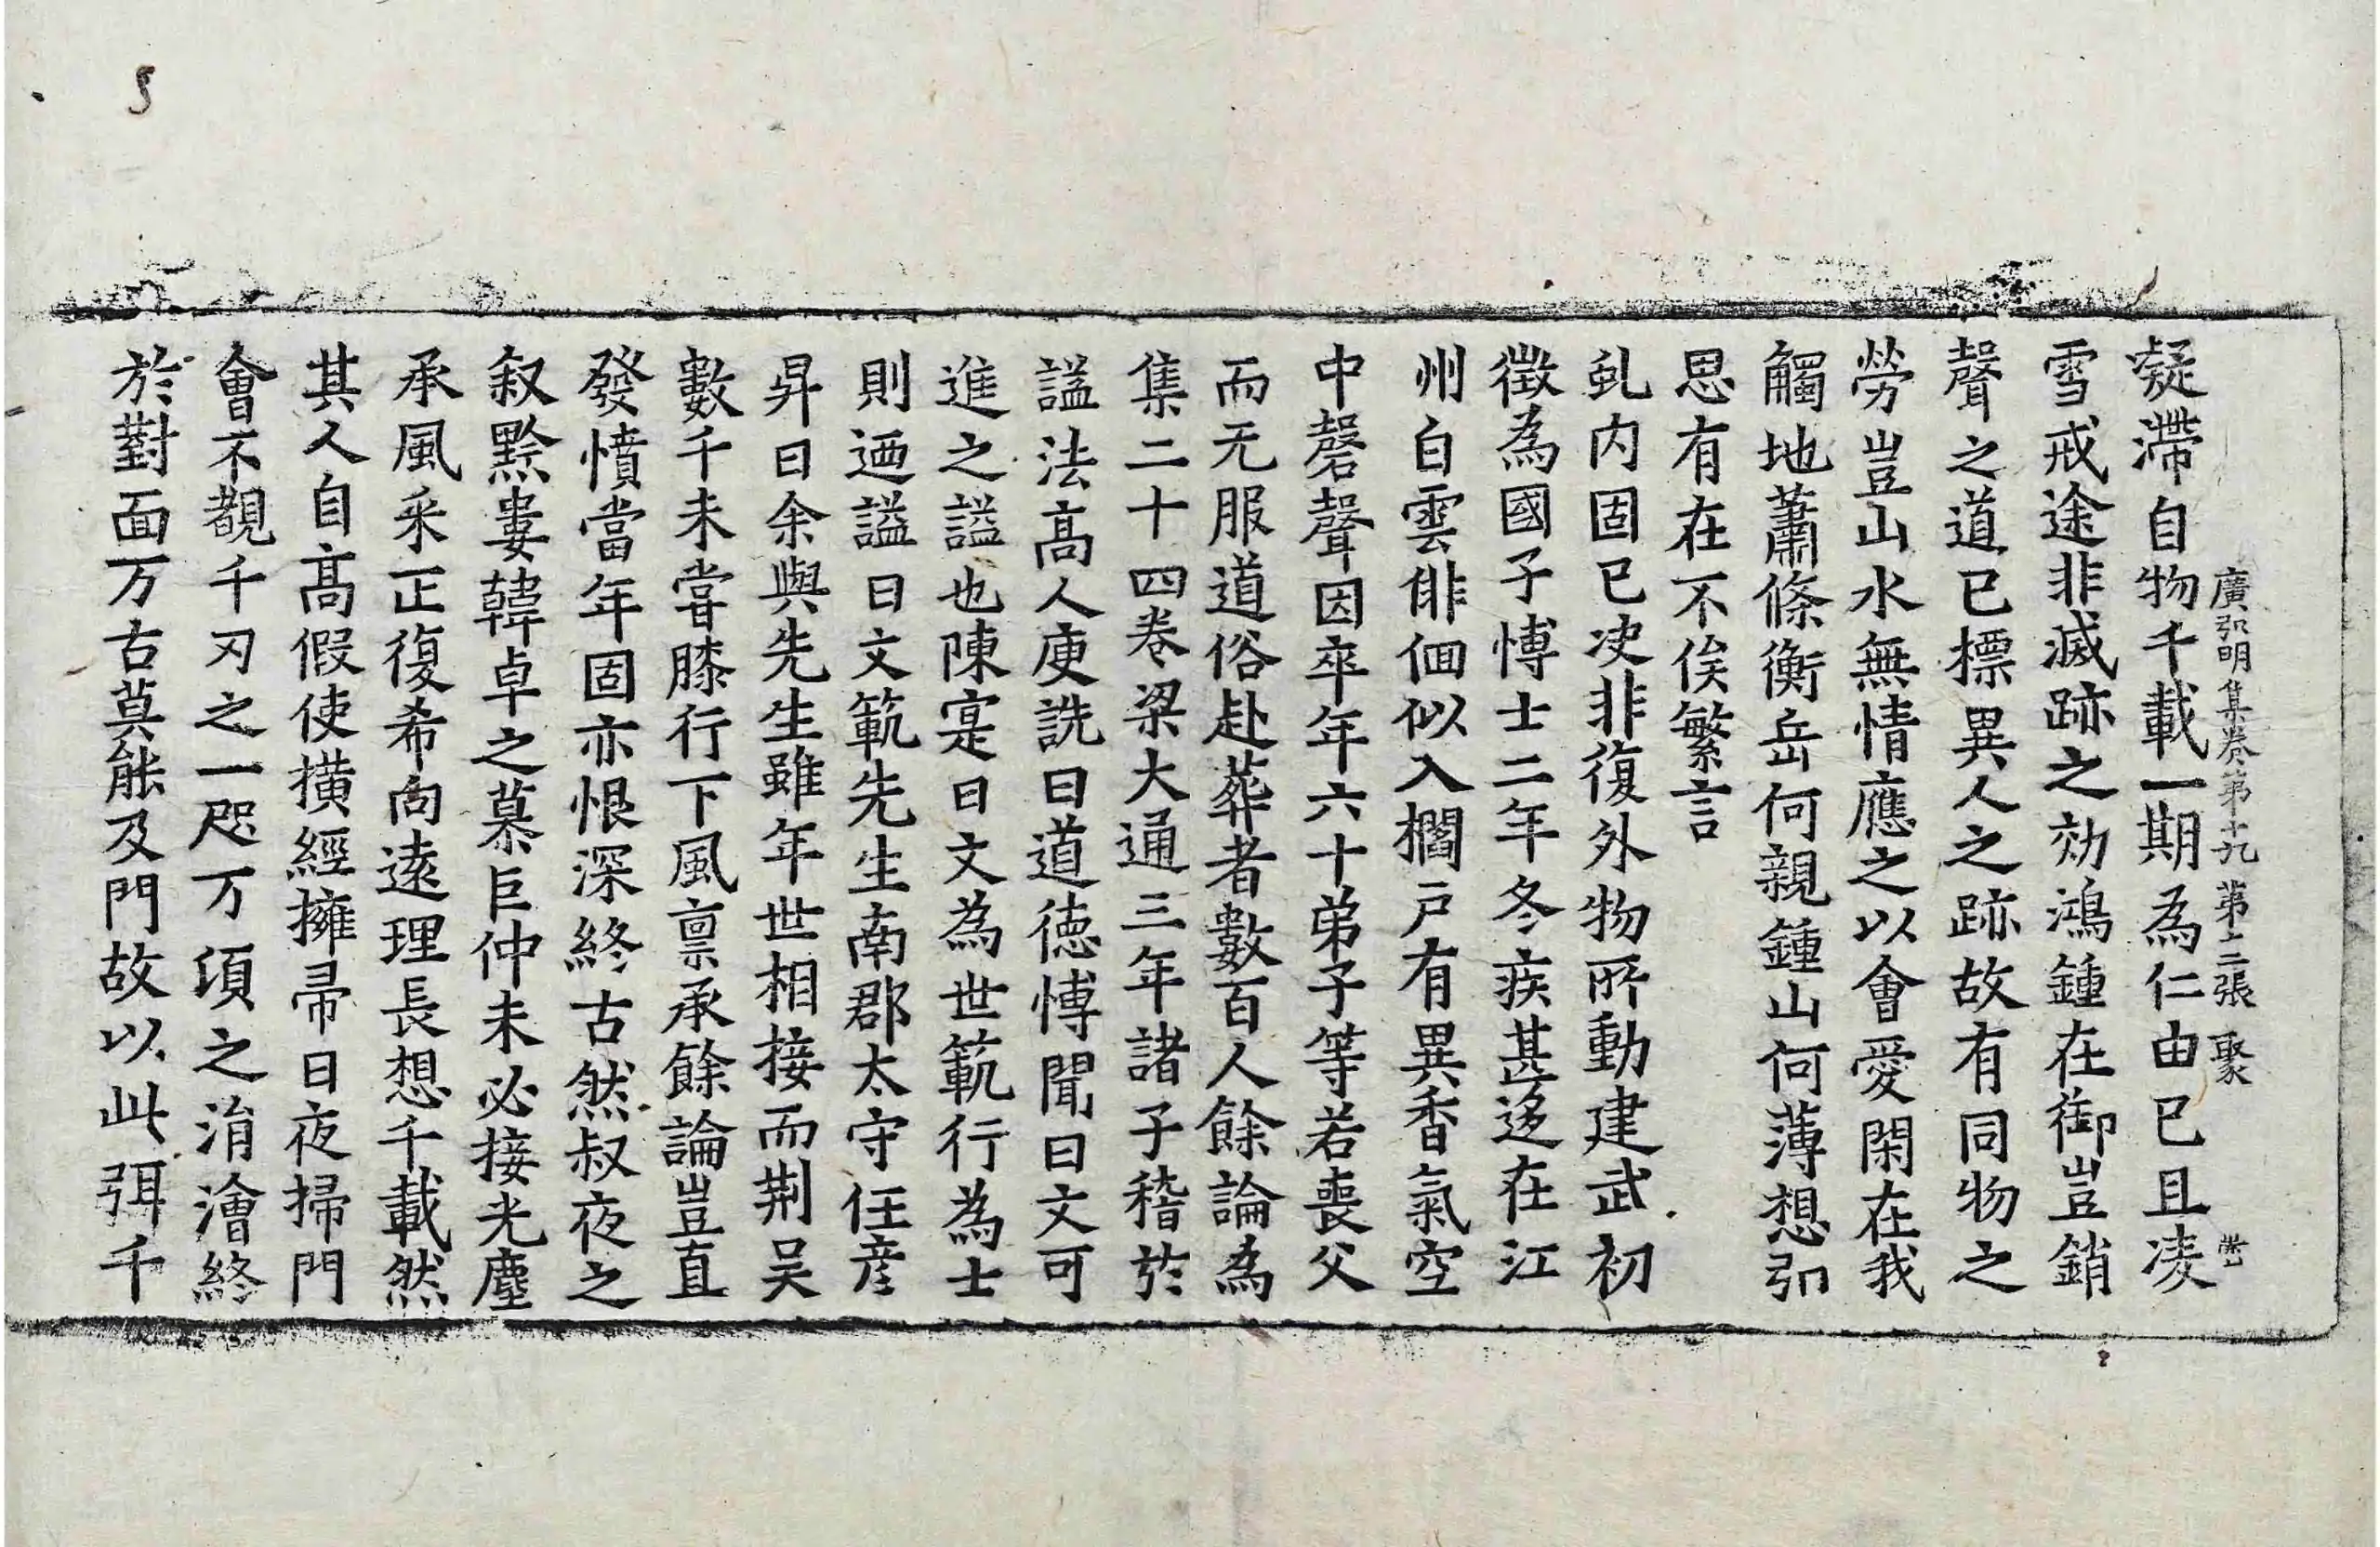 廣弘明集卷第十九 第二張 聚
凝滯自物千載一期為仁由已且凌
雪戒途非滅跡之効鴻鍾在御豈銷
聲之道已標異人之跡故有同物之
勞豈山水無情應之以會愛閑在我
觸地蕭條衡岳何親鍾山何薄想弘
思有在不俟繁言
虬内固已决非復外物所動建武初
徵為國子愽士二年冬疾甚迻在江
州白雲俳佪似入櫩戸有異香氣空
中磬聲因卒年六十弟子等若喪父
而无服道俗赴葬者數百人餘論為
集二十四卷梁大通三年諸子稽於
諡法高人庾詵曰道徳愽聞曰文可
進之諡也陳寔曰文為世範行為士
則迺諡曰文範先生南郡太守任彦
昇曰余與先生雖年世相接而荆吴
數千未甞膝行下風禀承餘論豈直
發憤當年固亦恨深終古然叔夜之
叙黙婁韓卓之慕巨仲未必接光塵
承風采正復希向逺理長想千載然
其人自高假使撗經擁帚日夜掃門
會不覩千刃之一咫万頃之涓澮終
於對面万古莫能及門故以此弭千